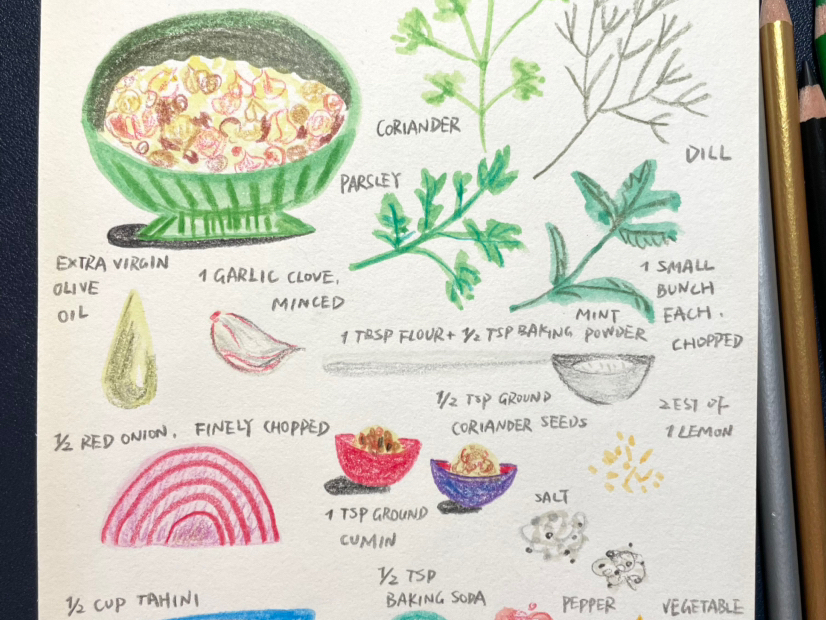 CORIANDER
DILL
PARSLEY
EXTRA VIRGIN
OLIVE
OIL
1 GARLIC CLOVE,
MINCED
1 SMALL
BUNCH
EACH.
CHOPPED
MINT
1 TBSP FLOUR + 1/2 TSP BAKING POWDER
1/2 TSP GROUND
CORIANDER SEEDS
ZEST OF
1 LEMON
1/2 RED ONION, FINELY CHOPPED
1 TSP GROUND
CUMIN
SALT
1/2 CUP TAHINI
1/2 TSP
BAKING SODA
PEPPER
VEGETABLE